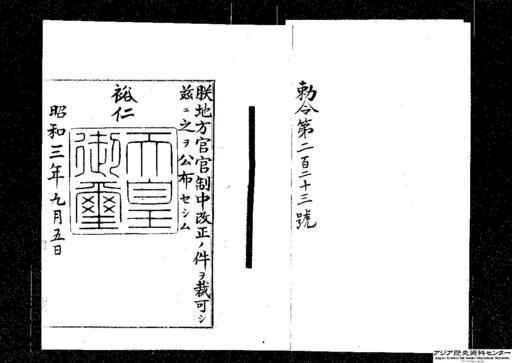 勅令第二百二十三號
朕地方官官制中改正ノ件ヲ裁可シ
茲ニ之ヲ公布セシム
裕仁
天皇
御璽
昭和三年九月五日
アジア歴史資料センター
Japan Center for Asian Historical Records